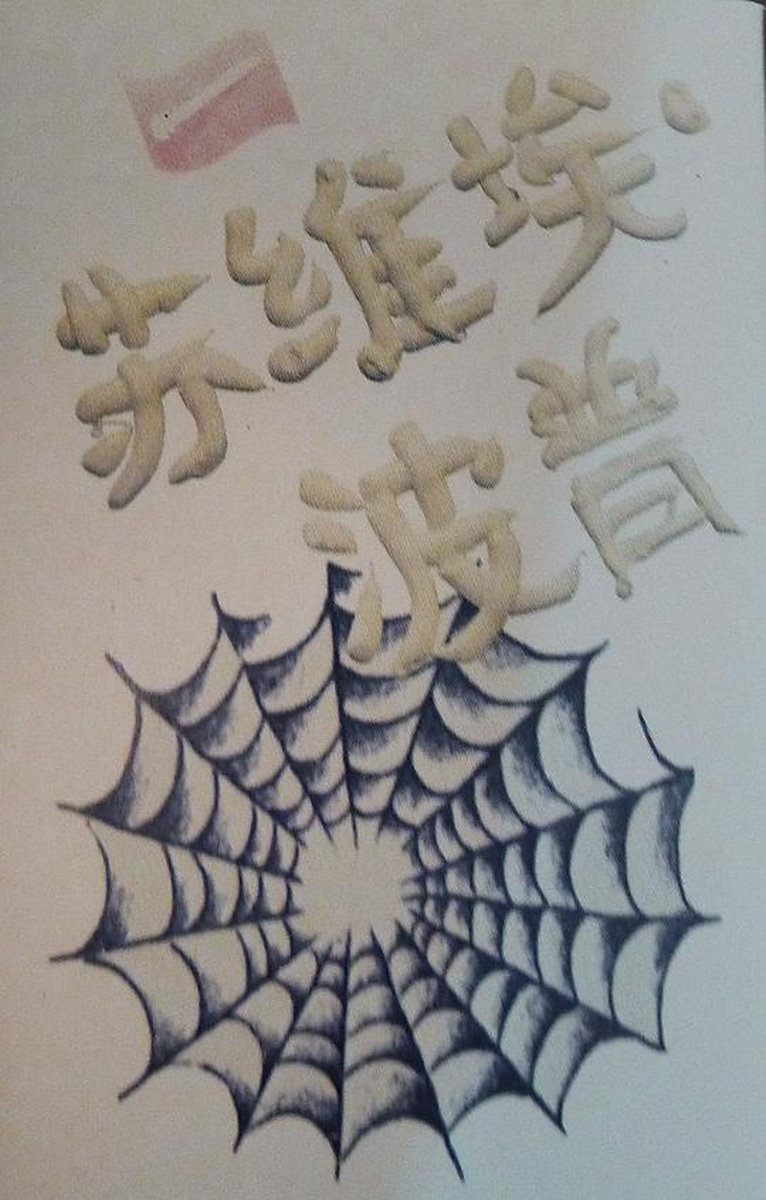 苏维埃、
波普